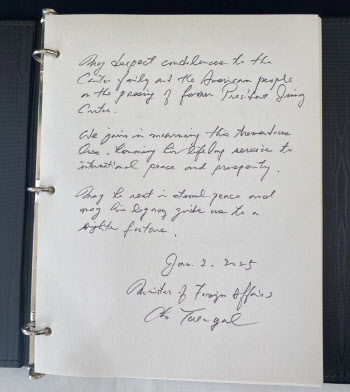 My deepest condolences to the
Carter family and the American people
on the passing of former President Jimmy
Carter.
We join in mourning this tremendous
loss, honoring his lifelong service to
international peace and prosperity.
May he rest in eternal peace and
may his legacy guide us to a
brighter future.
Jan. 2. 2025
Minister of Foreign Affairs
Cho Tae-yul